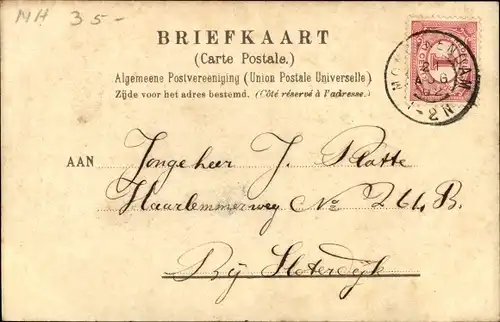 NH 35-
BRIEFKAART
(Carte Postale.)
Algemeene Postvereeniging (Union Postale Universelle)
Zijde voor het adres bestemd. (Côté réservé à l'adresse.)
AAN Jongeheer J. Platte
Haarlemmerweg No 264 B.
Bij Sloterdijk